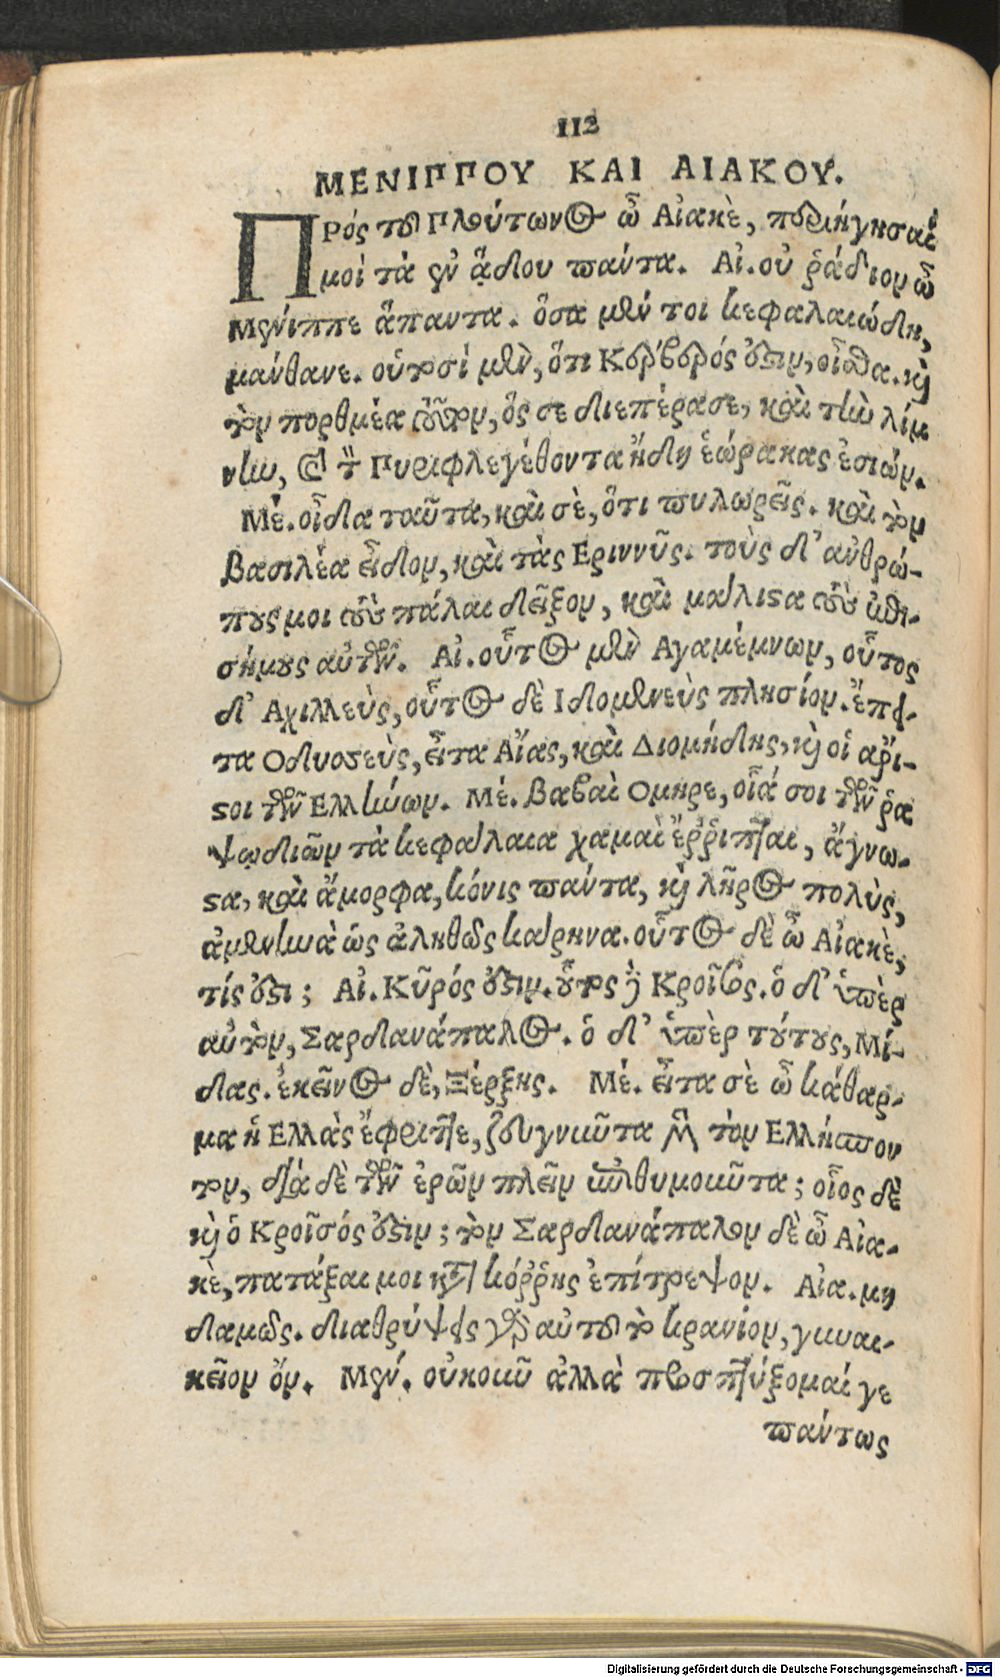 112
ΜΕΝΙΠΠΟΥ ΚΑΙ ΑΙΑΚΟΥ.
ΠΡός τοῦ Πλούτωνος ὦ Αἰακὲ, περιήγησαί
μοὶ τὰ ἐν ᾅδου πάντα. Αἰ. οὐ ῥάδιον ὦ
Μένιππε ἅπαντα. ὅσα μέν τοι κεφαλαιώδη,
μάνθανε. οὑτοσί μὲν, ὅτι Κέρβερός ἐστιν, οἶσθα. καὶ
τὸν πορθμέα τοῦτον, ὅς σε διεπέρασε, καὶ τὴν λίμ
νην, καὶ τὸν Πυριφλεγέθοντα ἤδη ἑώρακας ἐσιών.
Μέ. οἶδα ταῦτα, καὶ σὲ, ὅτι πυλωρεῖς. καὶ τὸν
βασιλέα εἶδον, καὶ τὰς Εριννῦς. τοὺς δ' ἀνθρώ-
πους μοι τοὺς πάλαι δεῖξον, καὶ μάλιστα τοὺς ἐπι-
σήμους αὐτῶν. Αἰ. οὗτος μὲν Αγαμέμνων, οὗτος
δ' Αχιλλεὺς, οὗτος δὲ Ιδομενεὺς πλησίον. ἔπει-
τα Οδυσσεὺς, εἶτα Αἴας, καὶ Διομήδης, καὶ οἱ ἄρι-
στοι τῶν Ελλήνων. Μέ. βαβαὶ Ομηρε, οἷά σοι τῶν ῥα
ψῳδιῶν τὰ κεφάλαια χαμαὶ ἔῤῥιπται, ἄγνω-
στα, καὶ ἄμορφα, κόνις πάντα, καὶ λῆρος πολὺς,
ἀμενηνὰ ὡς ἀληθῶς κάρηνα. οὗτος δὲ ὦ Αἰακὲ,
τίς ἐστι; Αἰ. Κῦρός ἐστιν. οὗτος δὲ Κροῖσος. ὁ δ' ὑπὲρ
αὐτὸν, Σαρδανάπαλος. ὁ δ' ὑπὲρ τούτους, Μί-
δας. ἐκεῖνος δὲ, Ξέρξης. Μέ. εἶτα σὲ ὦ κάθαρ-
μα ἡ Ελλὰς ἔφριττε, ζευγνῦντα μὲν τὸν Ελλήσπον
τον, διὰ δὲ τῶν ὀρῶν πλεῖν ἐπιθυμοῦντα; οἷος δὲ
καὶ ὁ Κροῖσός ἐστιν; τὸν Σαρδανάπαλον δὲ ὦ Αἰα-
κὲ, πατάξαι μοι κατὰ κόῤῥης ἐπίτρεψον. Αἰα. μη
δαμῶς. διαθρύψεις γὰρ αὐτοῦ τὸ κρανίον, γυναι-
κεῖον ὄν. Μέν. οὐκοῦν ἀλλὰ προσπτύξομαί γε
πάντως
Digitalisierung gefördert durch die Deutsche Forschungsgemeinschaft - DFG